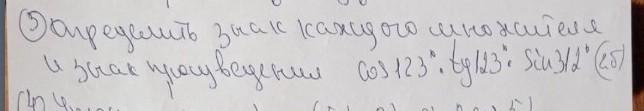 ⑤ Определить знак каждого множителя
и знак произведения cos123°·tg123°·sin312° (2б)
(4)